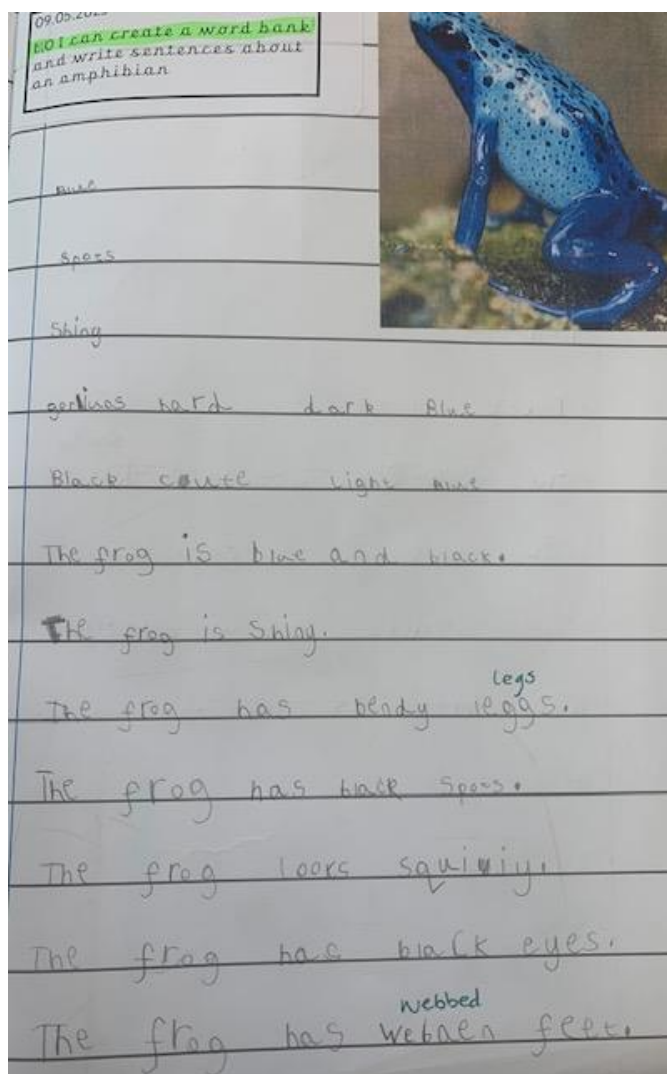 09.05.202
LO I can create a word bank
and write sentences about
an amphibian
Blue
Spots
Shing
hard dark Blue
Black coute Light Blue
The frog is blue and black.
The frog is Shing.
legs
The frog has bendy leggs.
The frog has black spots.
The frog looks
The frog has black eyes.
webbed
The frog has webnen feet.